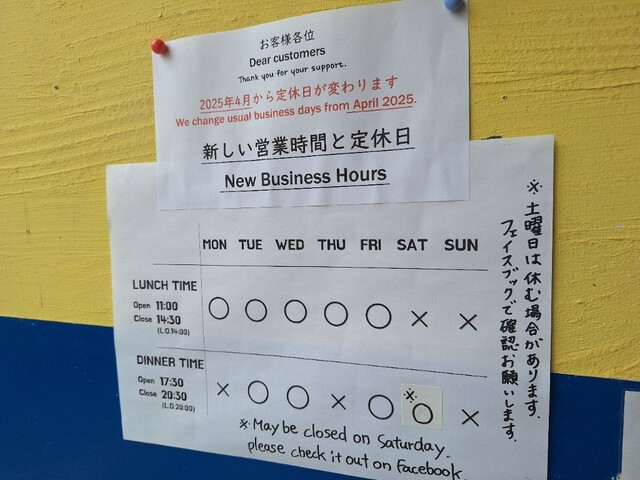 お客様各位
Dear customers
Thank you for your support.
2025年4月から定休日が変わります
We change usual business days from April 2025.
新しい営業時間と定休日
New Business Hours
MON TUE WED THU FRI SAT SUN
LUNCH TIME
Open 11:00 ○ ○ ○ ○ ○ × ×
Close 14:30
(L.O.14:00)
DINNER TIME
Open 17:30 × ○ ○ × ○ ※○ ×
Close 20:30
(L.O.20:00)
※May be closed on Saturday.
please check it out on Facebook.
※土曜日は休む場合があります.
フェイスブックで確認お願いします.